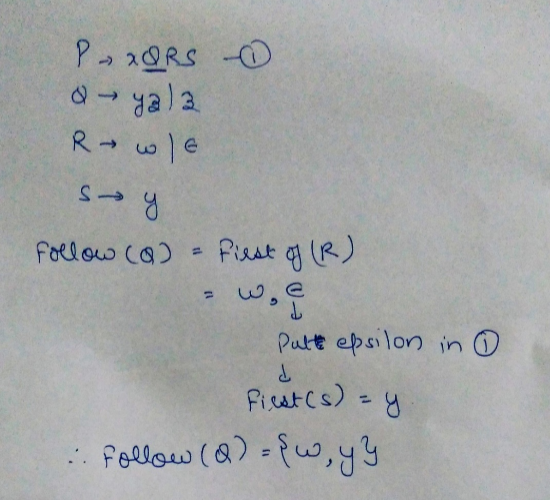 P → xQRS -①
Q → yz|z
R → w|∈
S → y
Follow(Q) = First of (R)
= w, ∈
↓
Put epsilon in ①
↓
First(S) = y
∴ Follow(Q) = {w, y}